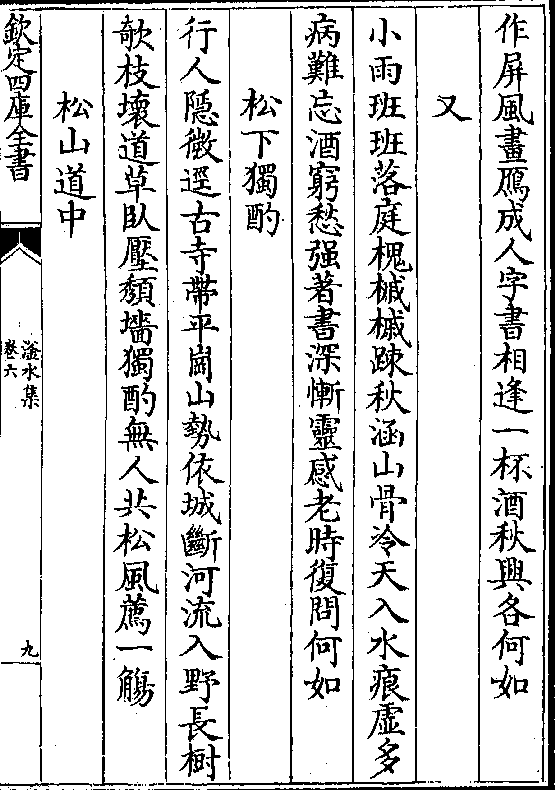 作屏風畫鴈成人字書相逢一杯酒秋興各何如
又
小雨班班落庭槐槭槭踈秋涵山骨冷天入水痕虛多
病難忘酒窮愁强著書深慚靈感老時復問何如
松下獨酌
行人隱微逕古寺帶平崗山勢依城斷河流入野長樹
欹枝壞道草卧壓頽墻獨酌無人共松風薦一觴
松山道中
欽定四庫全書
滏水集
卷六
九